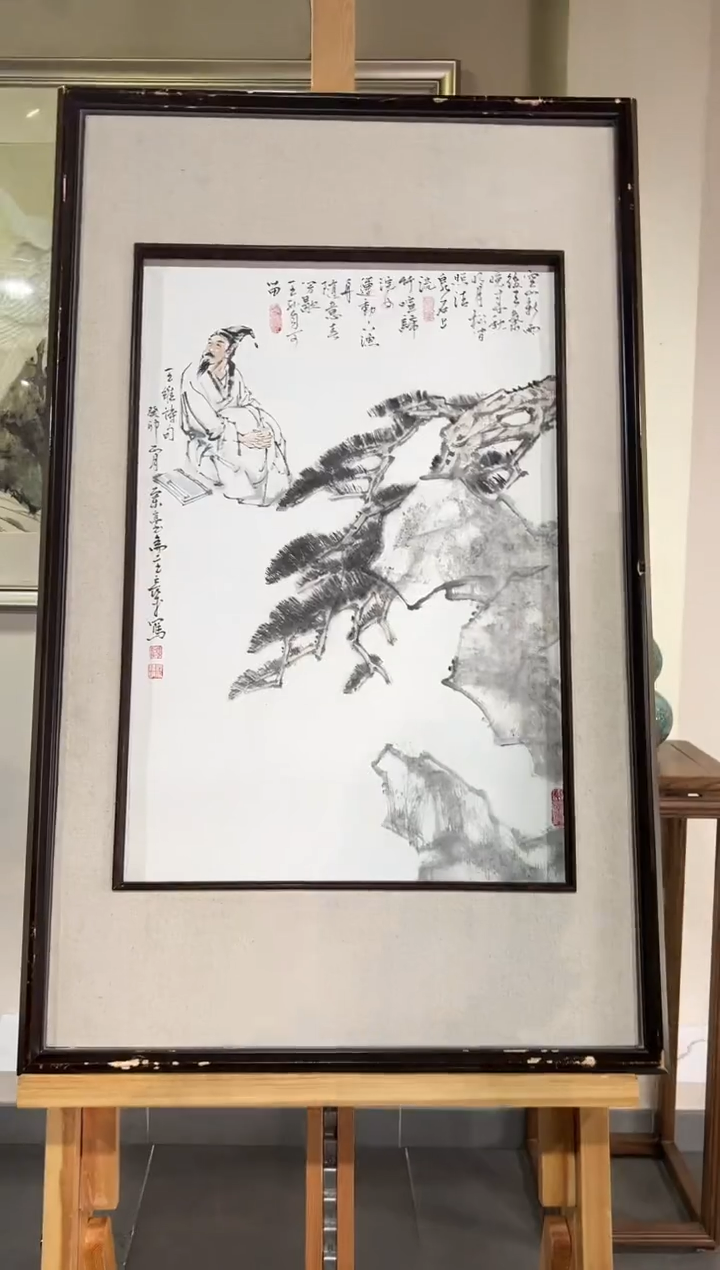 空山新雨
後天氣
晚来秋
明月松间
照清
泉石上
流
竹喧歸
浣女
蓮動下漁
舟
随意春
芳歇
王孙自可
留
王維詩句
癸卯 月 寫